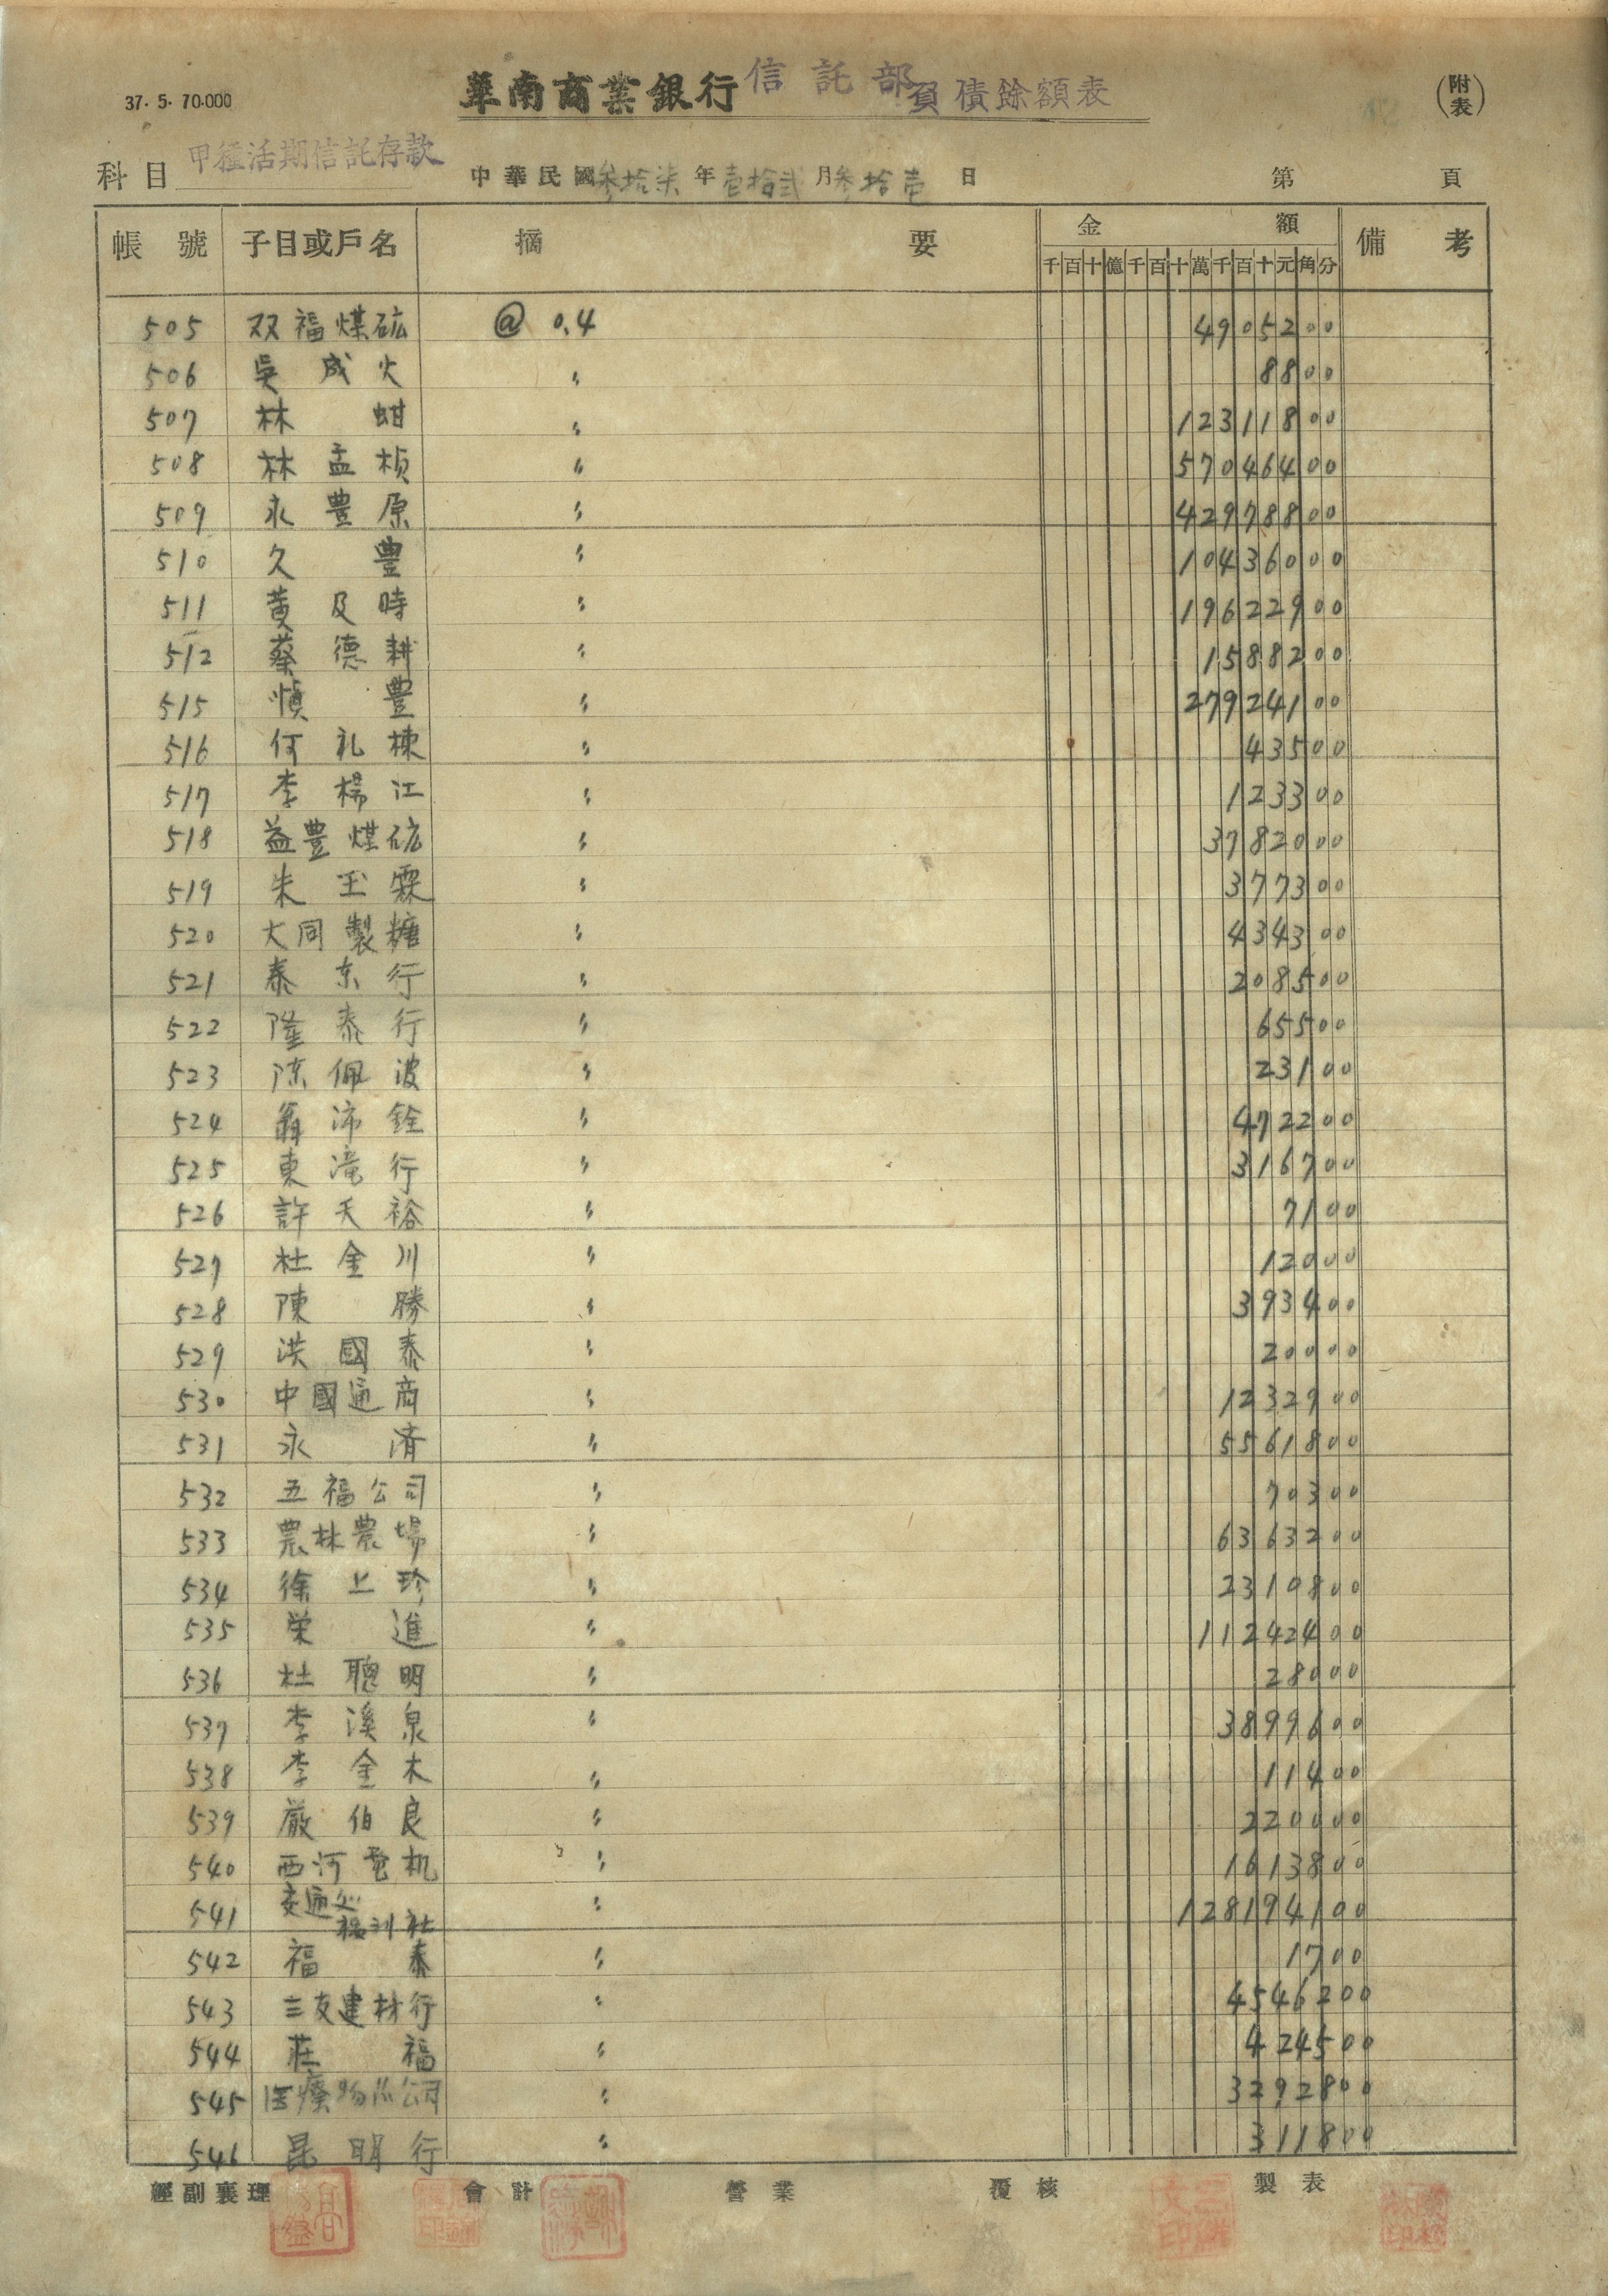 37. 5. 70.000
華南商業銀行信託部負債餘額表
(附表)
科目 甲種活期信託存款 中華民國參拾柒年壹拾弍月參拾壱日 第 頁
帳號 子目或戶名 摘要 金額 備考
千百十億千百十萬千百十元角分
505 双福煤砿 @ 0.4 4905200
506 吳成火 〃 8800
507 林蚶 〃 12311800
508 林孟楨 〃 57046400
509 永豊原 〃 42978800
510 久豊 〃 10436000
511 黄及時 〃 19622900
512 蔡德耕 〃 1588200
515 慎豊 〃 27924100
516 何礼棟 〃 43500
517 李楊江 〃 123300
518 益豊煤砿 〃 3782000
519 朱玉霖 〃 377300
520 大同製糖 〃 434300
521 泰东行 〃 208500
522 隆泰行 〃 65500
523 陈佩波 〃 23100
524 翁沛銓 〃 472200
525 東滝行 〃 316700
526 許天裕 〃 7100
527 杜金川 〃 12000
528 陳勝 〃 393400
529 洪國泰 〃 20000
530 中國通商 〃 1232900
531 永済 〃 5561800
532 五福公司 〃 70300
533 農林農場 〃 6363200
534 徐上珍 〃 2319800
535 栄進 〃 11242400
536 杜聰明 〃 28000
537 李溪泉 〃 3899600
538 李金木 〃 11400
539 嚴伯良 〃 220000
540 西河電机 〃 1613800
541 交通处福利社 〃 128194100
542 福泰 〃 1700
543 三友建材行 〃 4546200
544 莊福 〃 424500
545 医療物品公司 〃 3292800
546 昆明行 〃 311800
經副襄理 會計 營業 覆核 製表